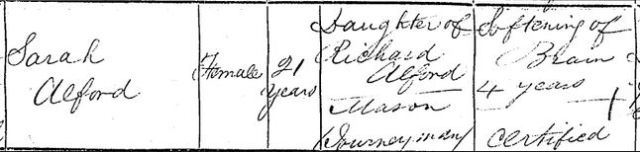 Sarah
Alford
Female
21
years
Daughter of
Richard
Alford
Mason
(Journeyman)
Softening of
Brain
4 years
Certified